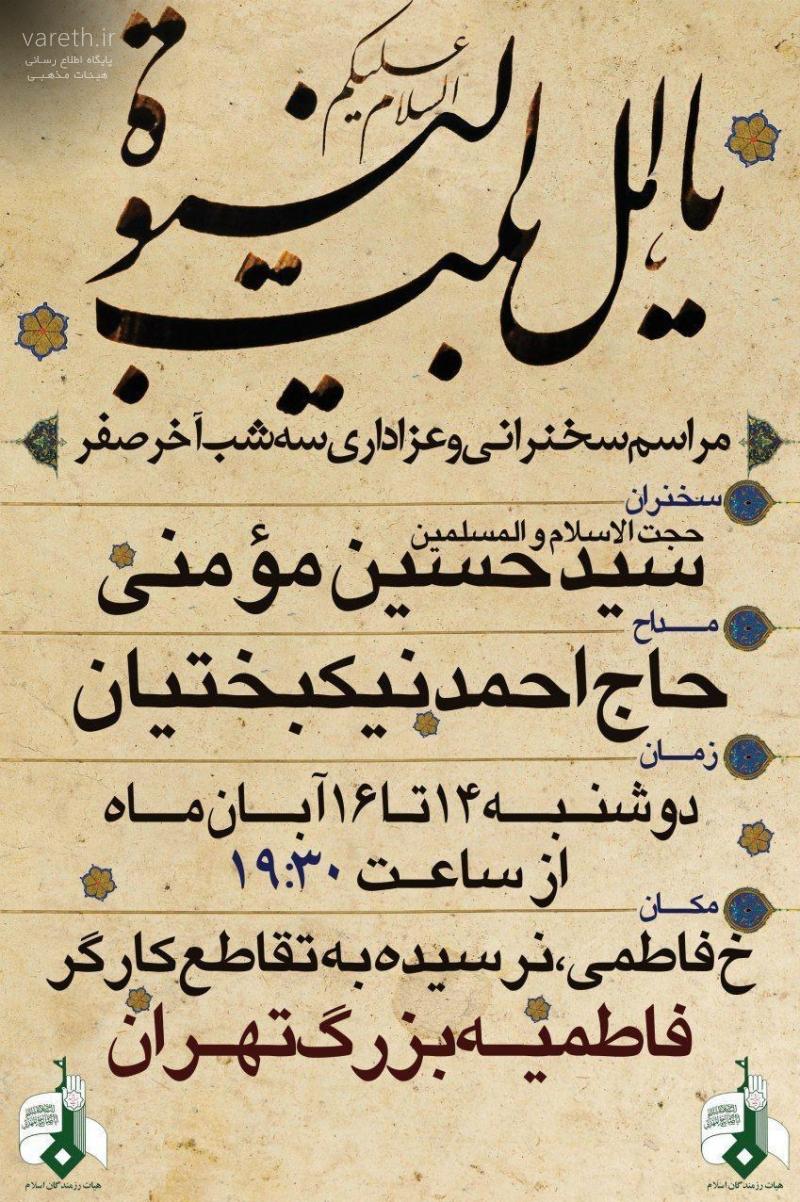 vareth.ir
پایگاه اطلاع رسانی
هیئات مذهبی
السلام علیکم
یا اهل البیت النبوة
مراسم سخنرانی و عزاداری سه شب آخر صفر
سخنران
حجت الاسلام و المسلمین
سید حسین مؤمنی
مداح
حاج احمد نیکبختیان
زمان
دوشنبه ۱۴ تا ۱۶ آبان ماه
از ساعت ۱۹:۳۰
مکان
خ فاطمی، نرسیده به تقاطع کارگر
فاطمیه بزرگ تهران
هیات رزمندگان اسلام
هیات رزمندگان اسلام